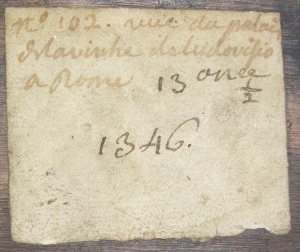 no. 102. vuë du palai
de la vinhe da ludovisio
a Rome 13 once
1/2
1346.